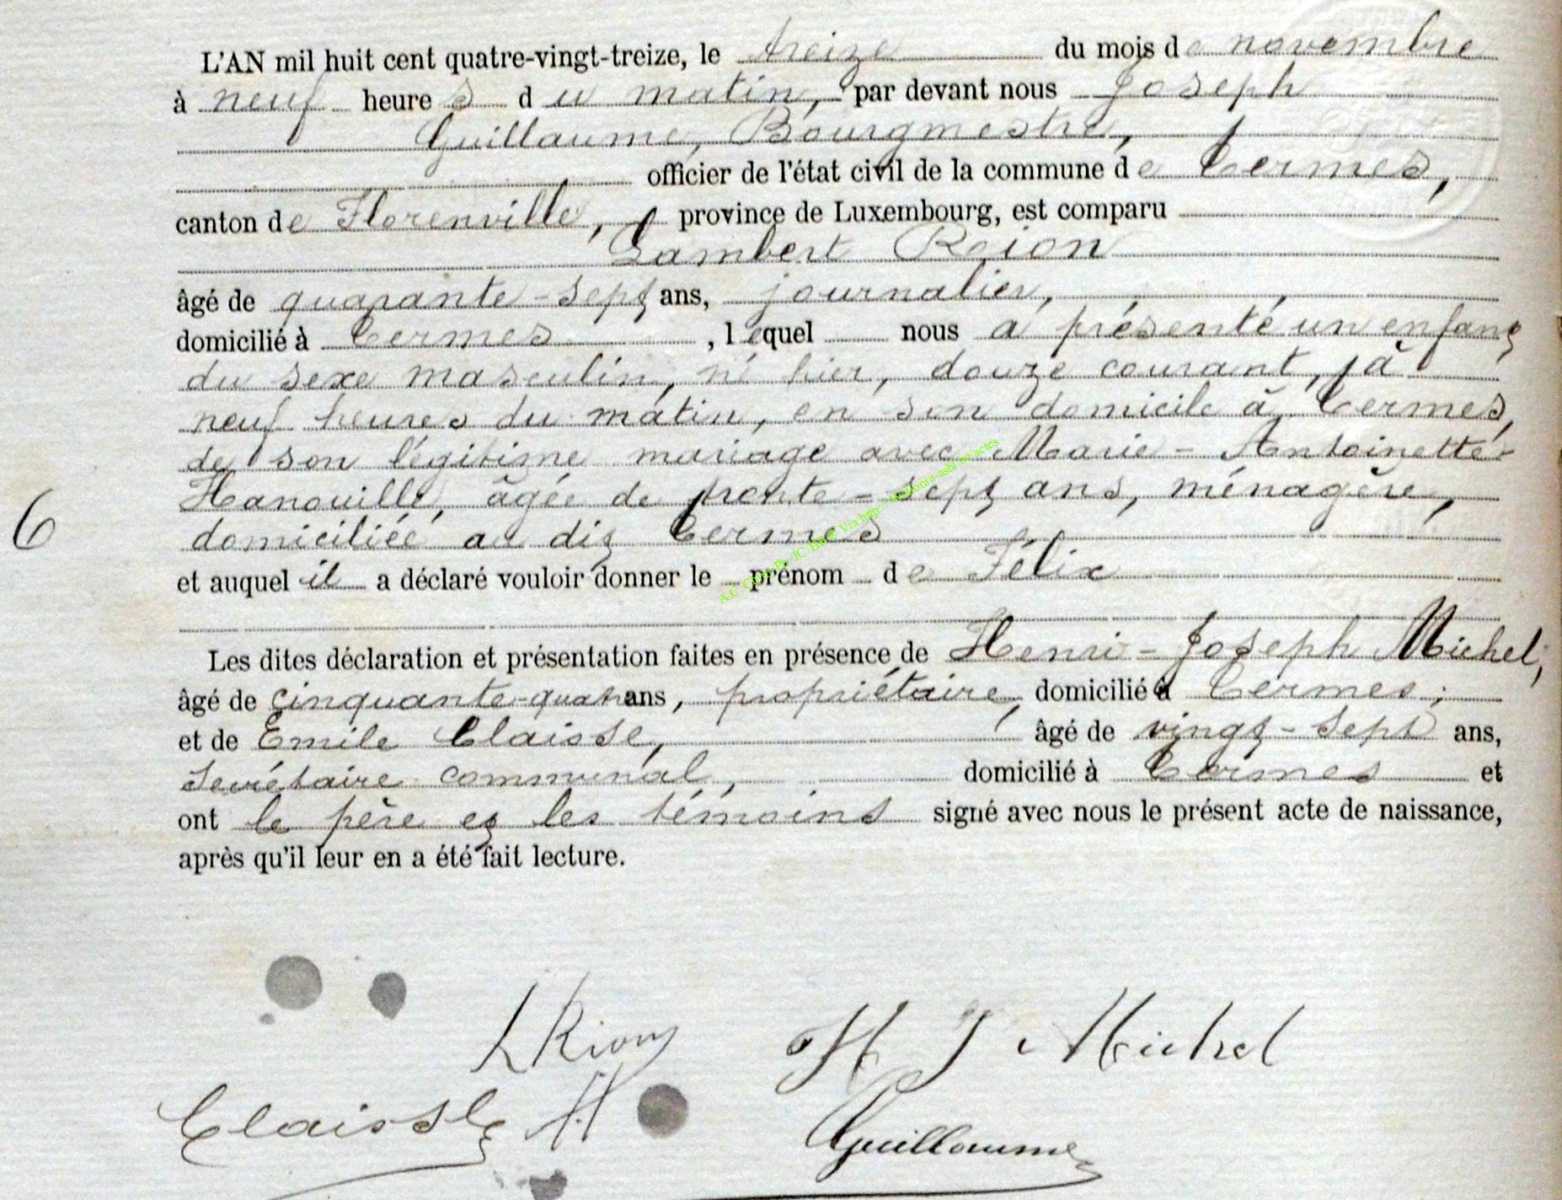 L'AN mil huit cent quatre-vingt-treize, le treize du mois de novembre
à neuf heures du matin, par devant nous Joseph
Guillaume, Bourgmestre,
officier de l'état civil de la commune de Termes,
canton de Florenville, province de Luxembourg, est comparu
Lambert Rion
âgé de quarante-sept ans, journalier,
domicilié à Termes, lequel nous a présenté un enfant
du sexe masculin, né hier, douze courant, à
neuf heures du matin, en son domicile à Termes,
de son légitime mariage avec Marie-Antoinette
Hanouille, âgée de trente-sept ans, ménagère,
domiciliée au dit Termes
6
et auquel il a déclaré vouloir donner le prénom de Félix
Les dites déclaration et présentation faites en présence de Henri-Joseph Michel,
âgé de cinquante-quatre ans, propriétaire, domicilié à Termes;
et de Emile Claisse, âgé de vingt-sept ans,
secrétaire communal, domicilié à Termes et
ont le père et les témoins signé avec nous le présent acte de naissance,
après qu'il leur en a été fait lecture.
L Rion H J Michel
Claisse Guillaume